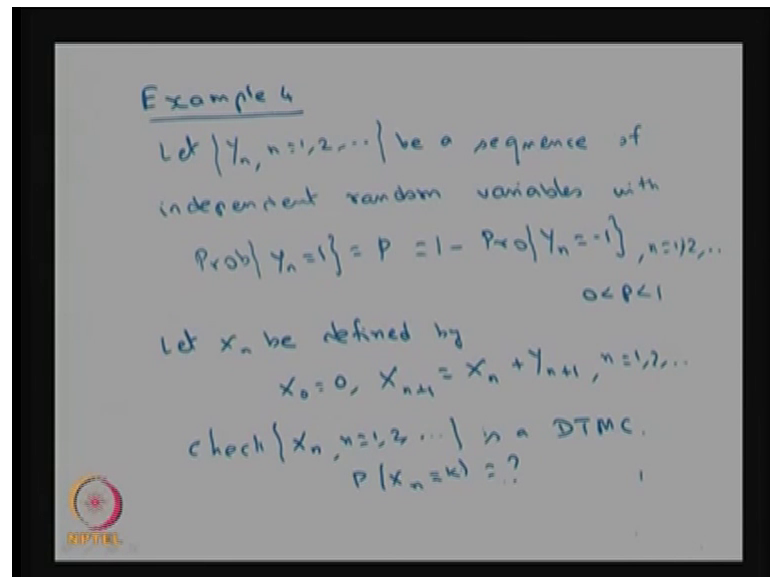 Example 4
Let {Yn, n=1,2,...} be a sequence of
independent random variables with
Prob{Yn=1} = P = 1 - Pro{Yn=-1}, n=1,2,..
0<P<1
Let Xn be defined by
X0=0, Xn+1 = Xn + Yn+1, n=1,2,..
check {Xn, n=1,2,...} is a DTMC.
P(Xn=k) = ?
NPTEL